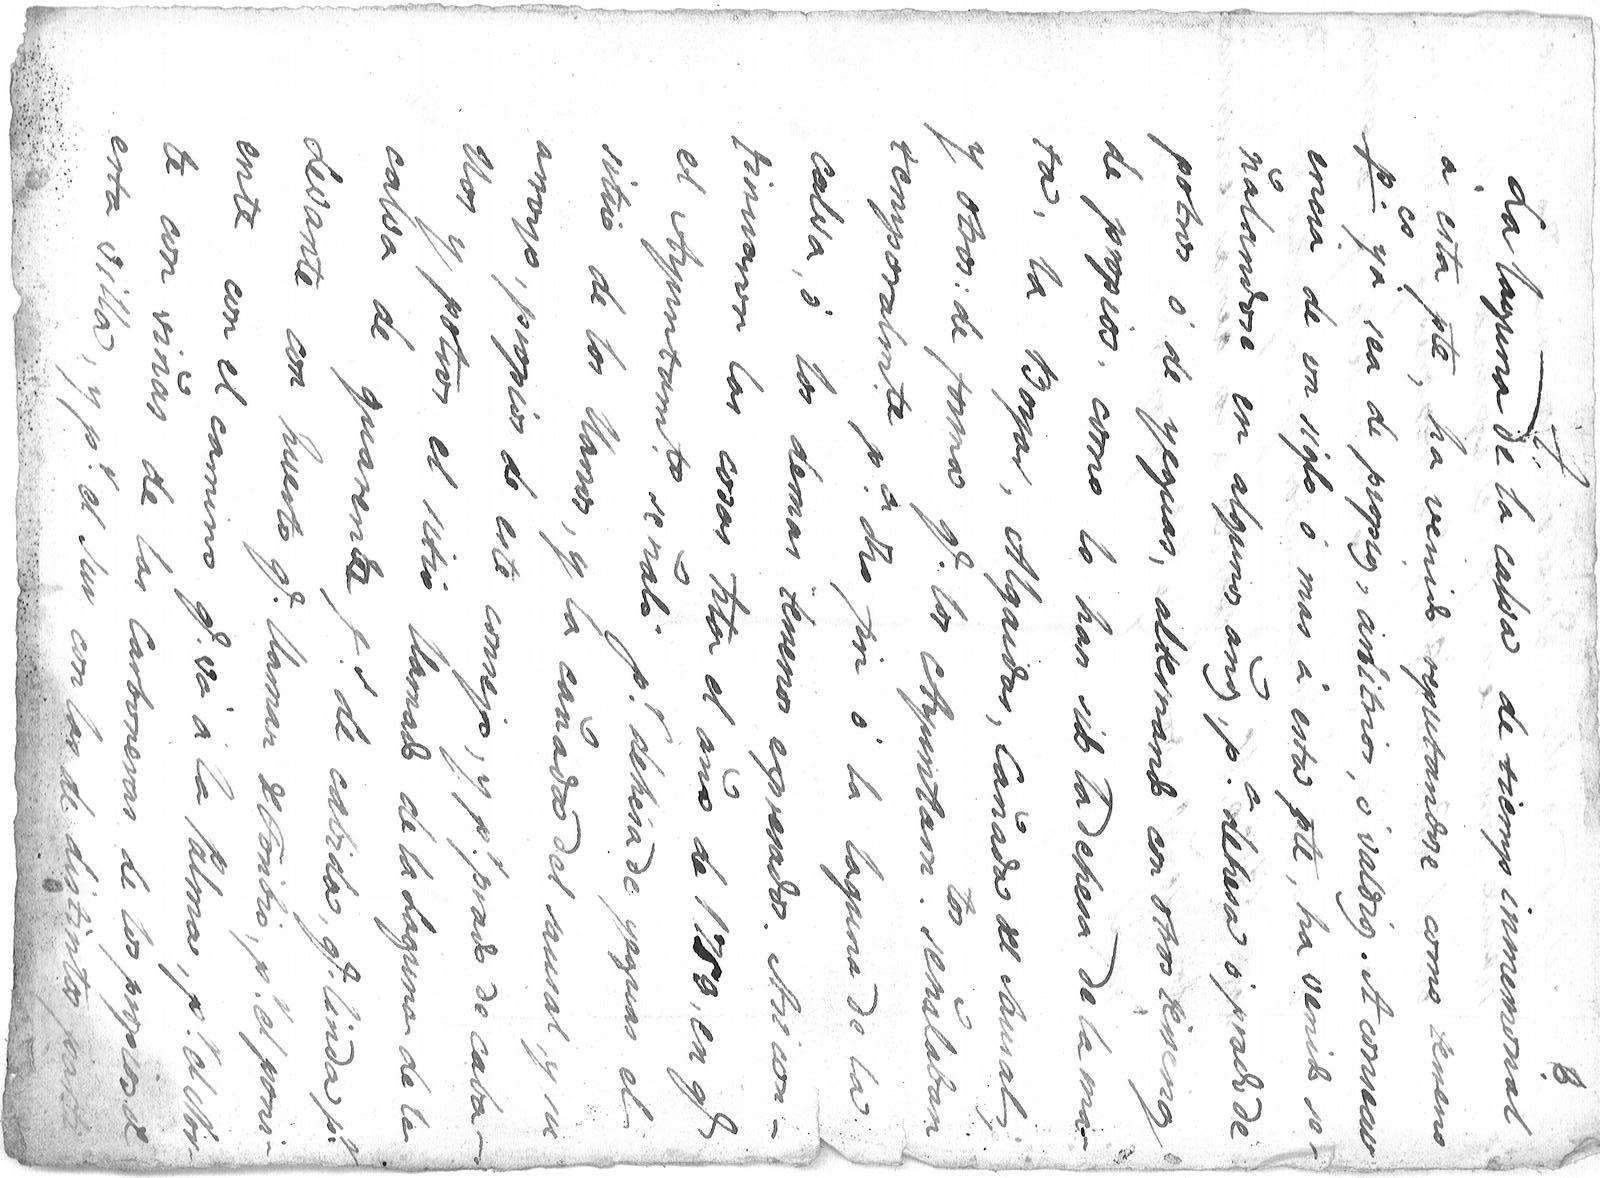 8
La laguna de la calsa de tiempo inmemorial
á esta pte, ha venido reputandose como terreno
pco ya sea de propios, arbitrios, ó valdios. A consecu
encia de un siglo ó mas á esta pte, ha venido se-
ñalandose en algunos años, pa dehesa ó prado de
potros ó de yeguas, alternando con otros terrenos
de propios. como lo han sido la Dehesa de la ma
ta, la Boyar, Algaidas, Cañada del Sausal,
y otros: de forma q.e los Ayuntamtos señalaban
temporalmte pa dho fin ó la laguna de la
calsa, ó los demas terrenos espresados. Asi con-
tinuaron las cosas hta el año de 1753, en q.e
el Ayuntamto señaló pr dehesa de yeguas el
sitio de los llanos, y la cañada del sausal y su
arroyo, propios de este consejo, y pr prado de caba-
llos y potros el sitio llamado de la Laguna de la
calsa de quarenta f.s de cabida, q.e linda pr
Levante con huerto q.e llaman de Toribio, pr el poni-
ente con el camino q.e vá á la Palma, pr el Nor-
te con viñas de las Carboneras de los propios de
esta villa, y pr el sur con las de distintos parti